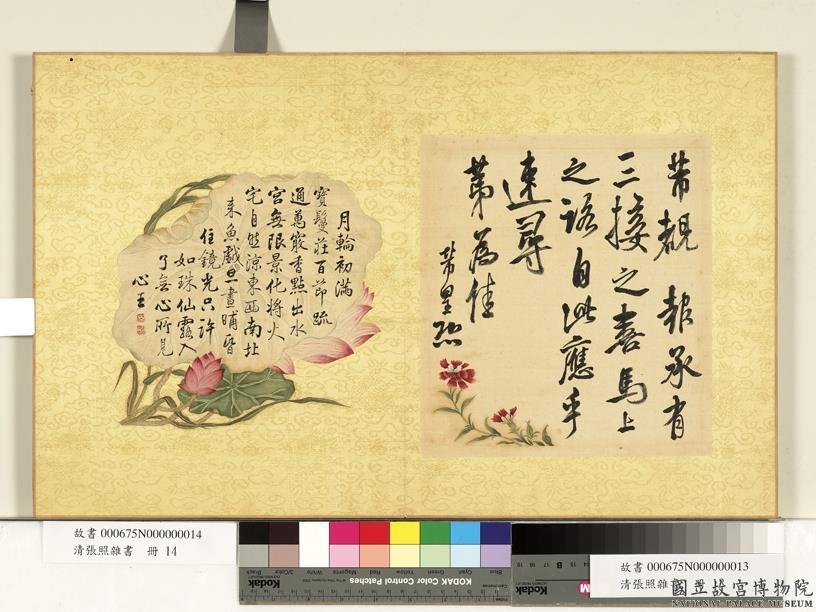 芾 報承有
三接之喜馬上
之語自此應乎
速尋
第為佳
芾皇恐
月輪初滿
寶鬘莊百節疏
通萬竅香點出水
宮無限景化將火
宅自然涼東西南北
來魚戲旦晝晡昏
住鏡光只許
如珠仙露入
了無心所見
心王
故書 000675N000000014
清張照雜書 冊 14
故書 000675N000000013
清張照雜書
國立故宮博物院
NATIONAL PALACE MUSEUM
KODAK Color Control Patches
Kodak
Black
3/Color
White
Magenta
Red
Yellow
Green
Cyan
Blue
B
M
Kodak